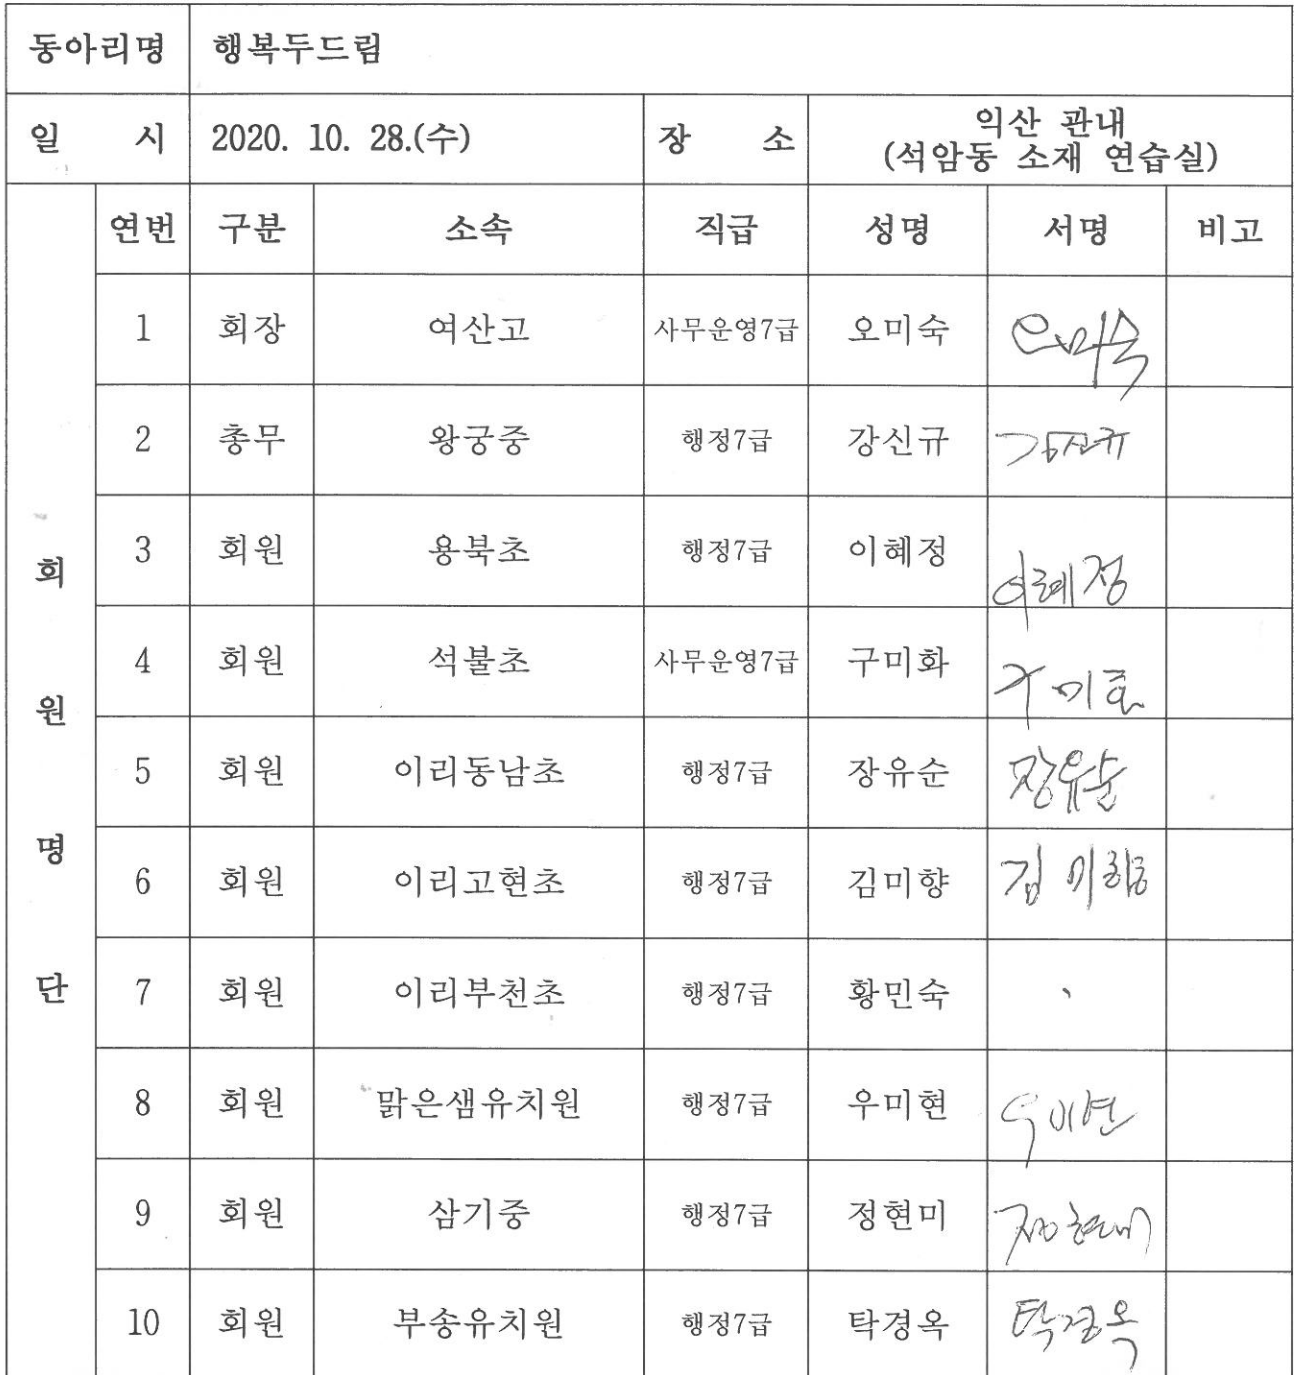 동아리명 행복두드림
일 시 2020. 10. 28.(수) 장 소 익산 관내
(석암동 소재 연습실)
회원명단
연번 구분 소속 직급 성명 서명 비고
1 회장 여산고 사무운영7급 오미숙 오미숙
2 총무 왕궁중 행정7급 강신규 강신규
3 회원 용북초 행정7급 이혜정 이혜정
4 회원 석불초 사무운영7급 구미화 구미화
5 회원 이리동남초 행정7급 장유순 장유순
6 회원 이리고현초 행정7급 김미향 김미향
7 회원 이리부천초 행정7급 황민숙
8 회원 맑은샘유치원 행정7급 우미현 우미현
9 회원 삼기중 행정7급 정현미 정현미
10 회원 부송유치원 행정7급 탁경옥 탁경옥